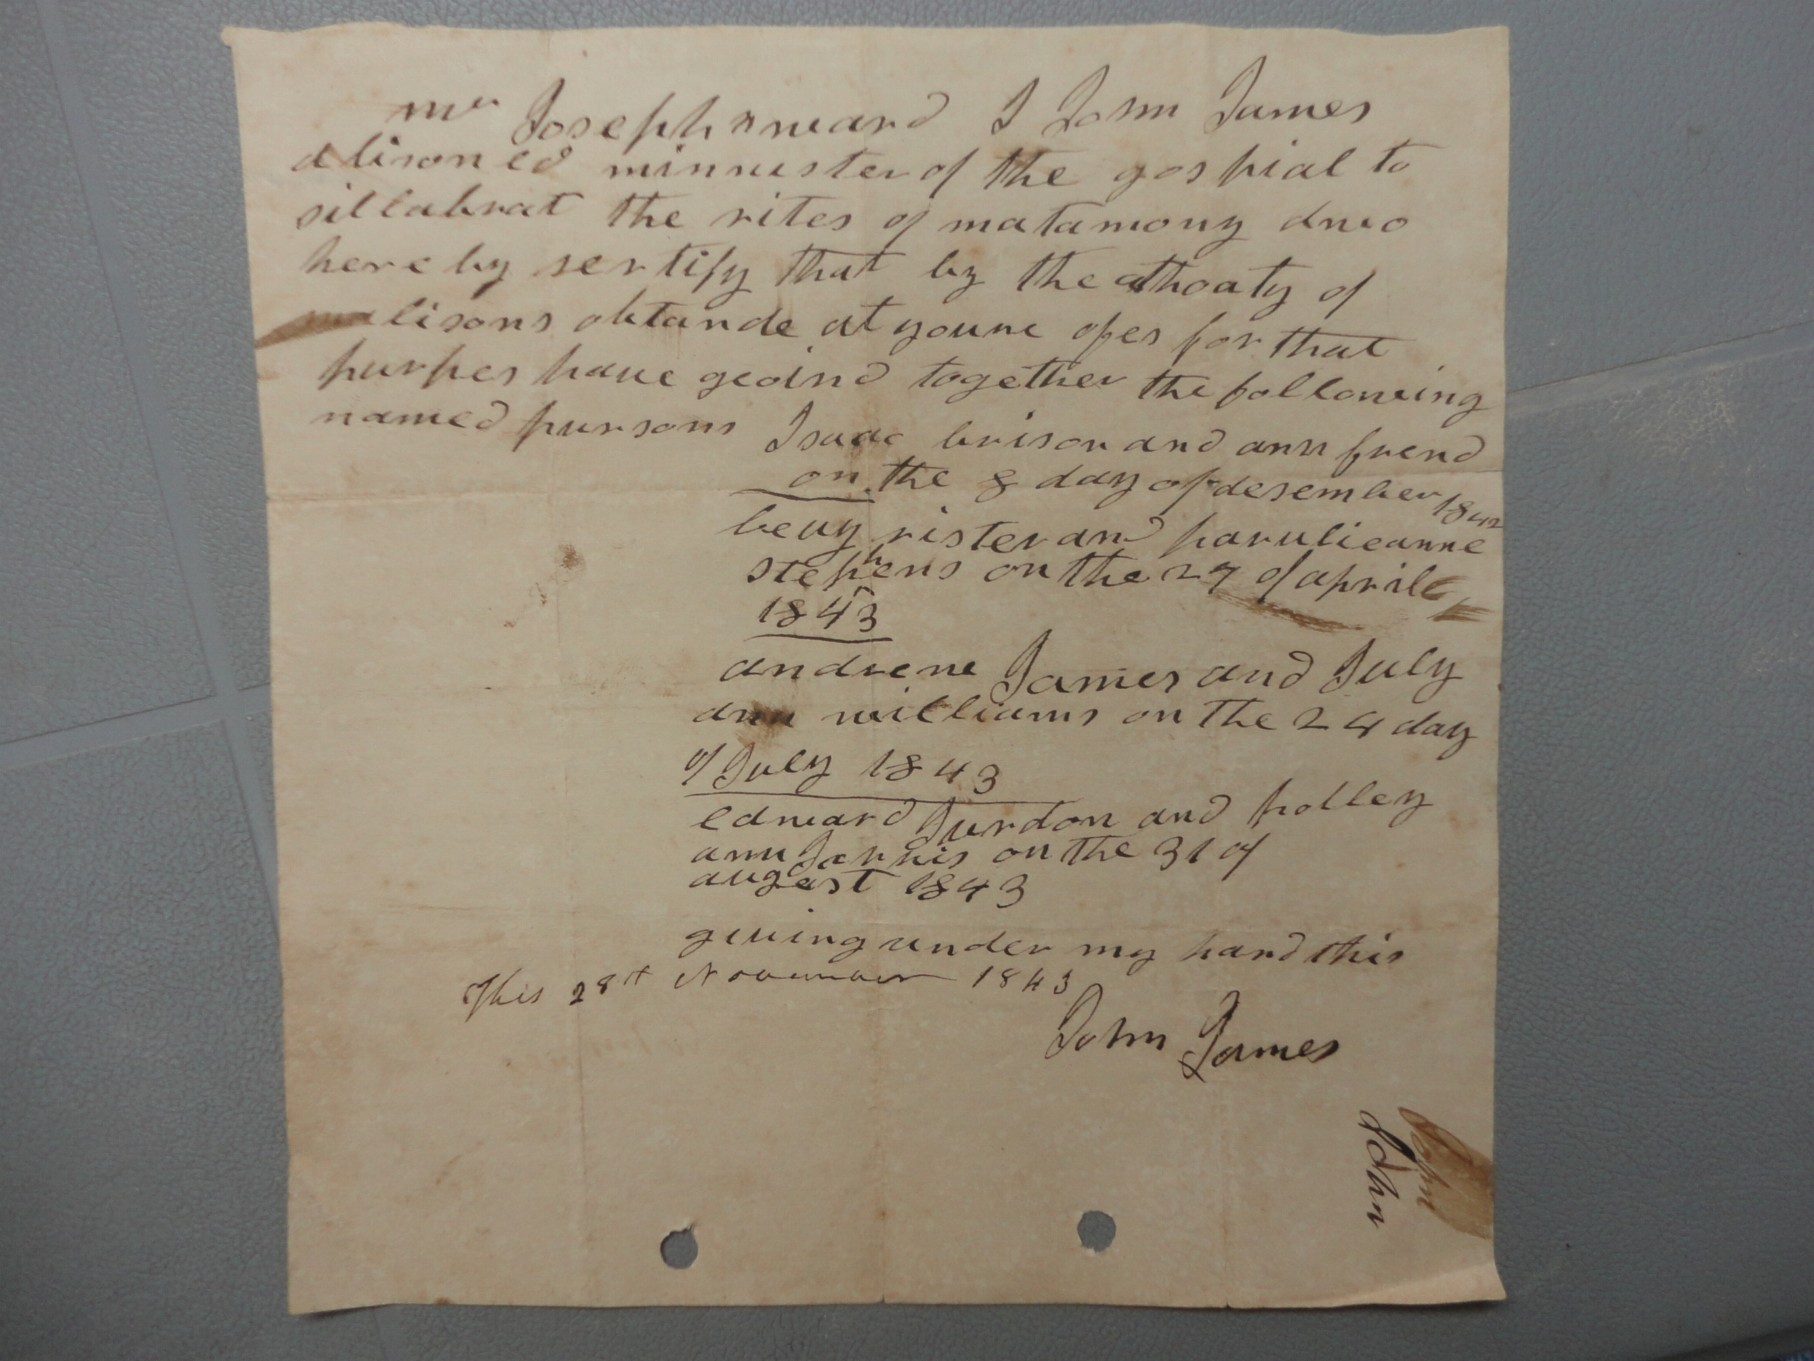 mr Joseph howard I John James
a lisoned minnester of the gospial to
sillabrat the rites of matamony duo
here by sertify that by the athoaty of
lisons obtande at youre ofes for that
purpes have geoind together the following
named pursons Isaac brison and ann frend
on the 8 day of desember 1842
beuy rister and parulieanne
stephens on the 27 of april
1843
andrene James and July
ann williams on the 24 day
of July 1843
edward Jurdon and polley
ann Jarvis on the 31 of
augest 1843
giuing under my hand this
This 28th November 1843
John James
John
John